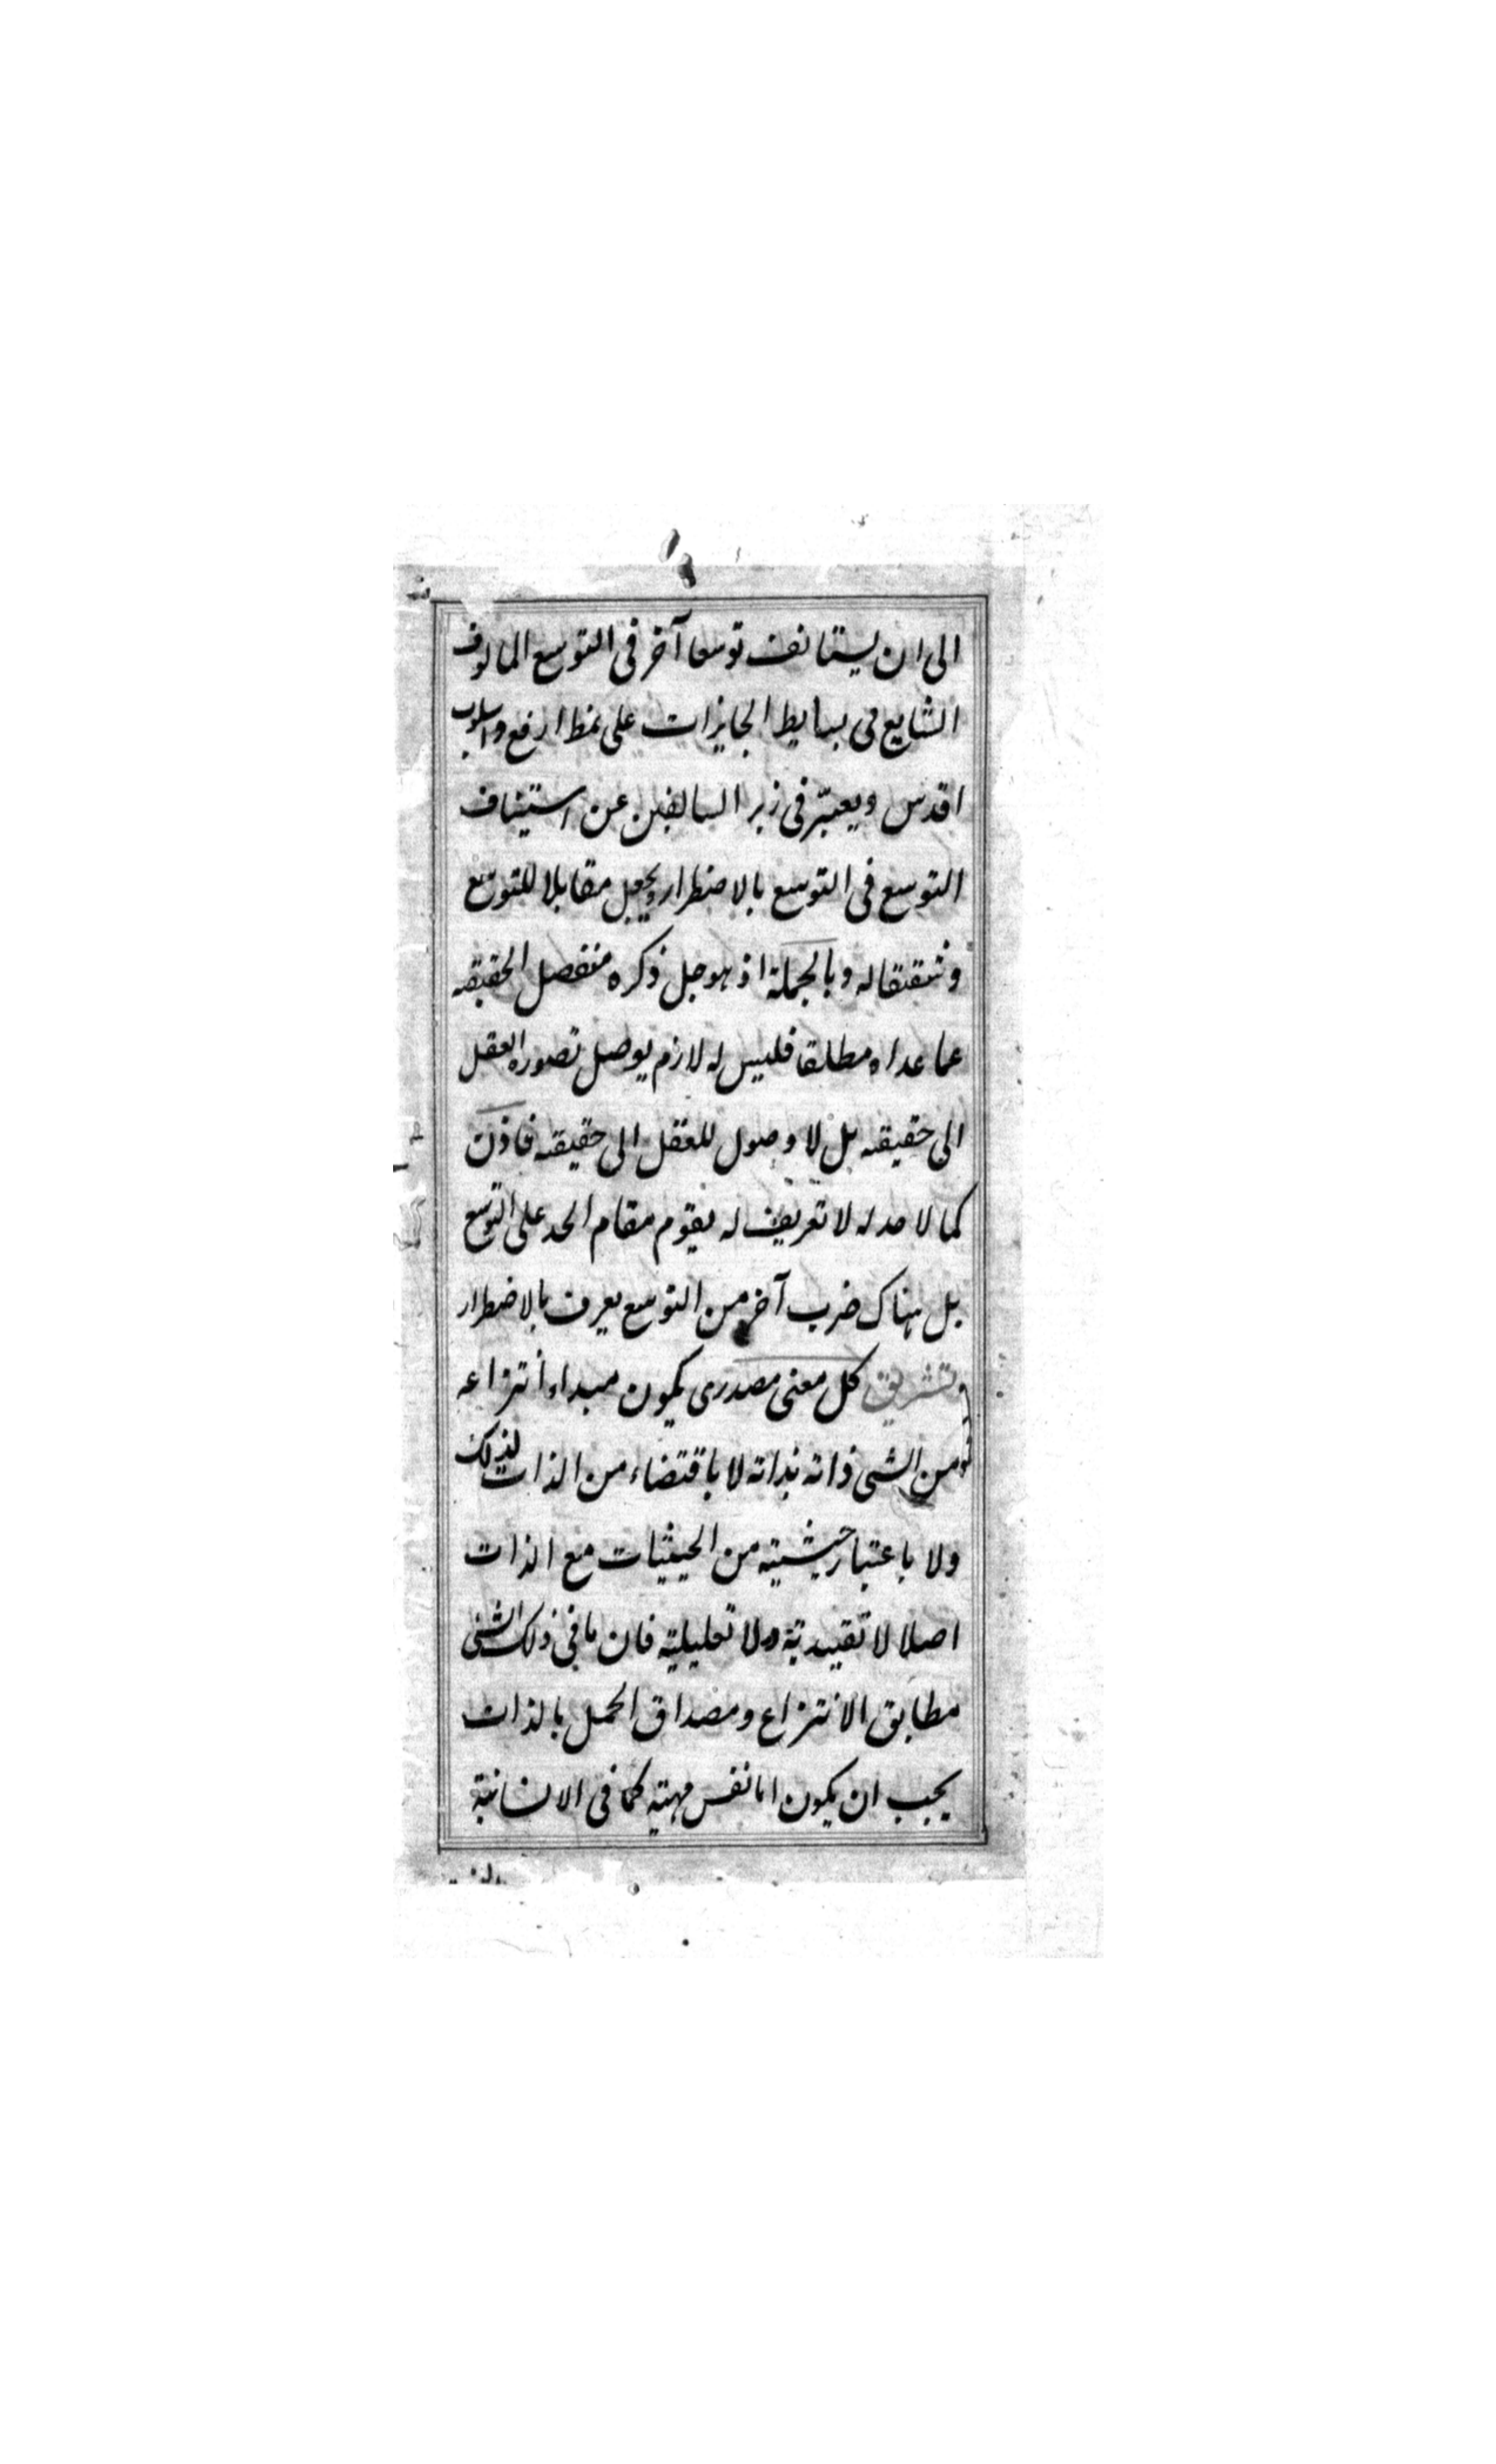 الى ان يستانف توسعا آخر فى التوسع المالوف
الشايع فى بسايط الجايزات على نمط ارفع واسلوب
اقدس ويعبّر فى زبر السالفين عن استيناف
التوسع فى التوسع بالاضطرار ويجعل مقابلا للتوسع
وشقيقا له وبالجملة اذ هو جل ذكره منفصل الحقيقه
عما عداه مطلقا فليس له لازم يوصل تصوره العقل
الى حقيقته بل لا وصول للعقل الى حقيقته فاذن
كما لا حد له لا تعريف له يقوم مقام الحد على التوسع
بل هناك ضرب آخر من التوسع يعرف بالاضطرار
وتشريق كل معنى مصدرى يكون مبداء انتزاعه
من الشى ذاته بذاته لا باقتضاء من الذات لذلك
ولا باعتبار حيثية من الحيثيات مع الذات
اصلا لا تقييدية ولا تعليلية فان ما فى ذلك الشى
مطابق الانتزاع ومصداق الحمل بالذات
يجب ان يكون اما نفس مهيته كما فى الانسانية